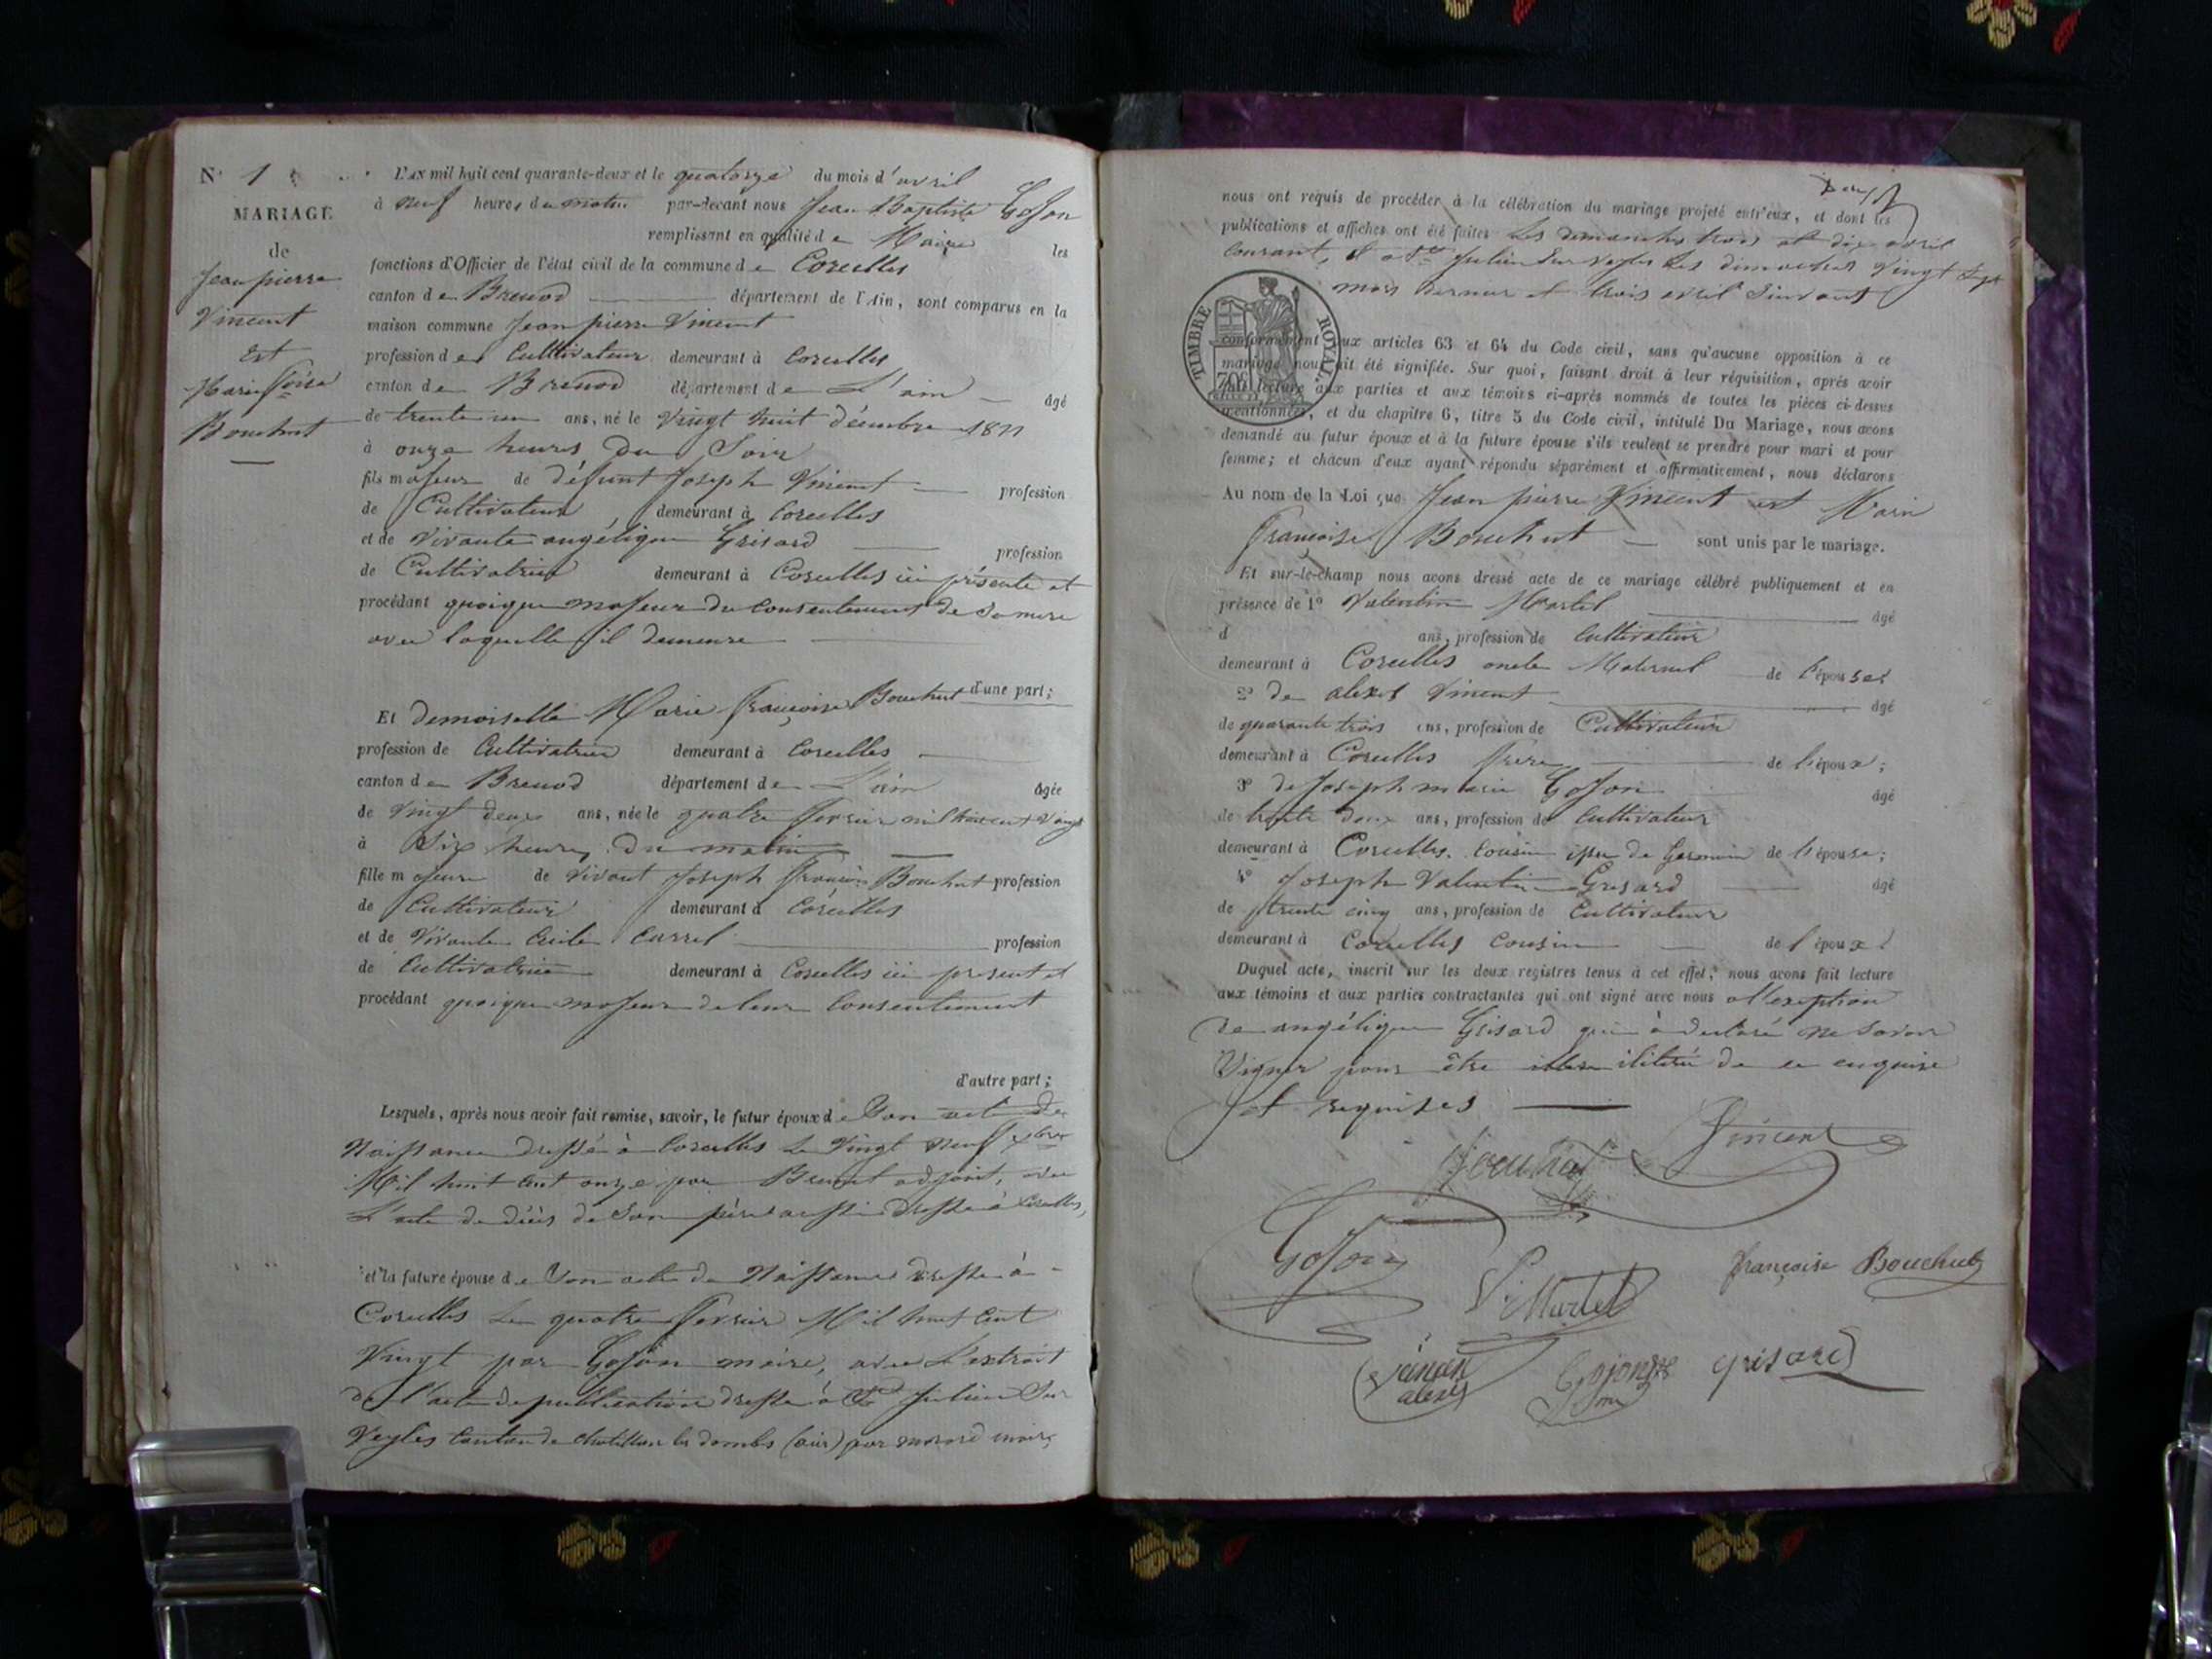 N° 1
MARIAGE
de
Jean pierre
Vincent
Et
Marie Foise
Bouchut
L'AN mil huit cent quarante-deux et le quatorze du mois d'avril
à neuf heures du matin par-devant nous Jean Baptiste Gojon
remplissant en qualité de Maire les
fonctions d'Officier de l'état civil de la commune de Corcelles
canton de Brenod département de l'Ain, sont comparus en la
maison commune Jean pierre Vincent
profession de Cultivateur demeurant à Corcelles
canton de Brenod département de L'ain âgé
de trente un ans, né le Vingt huit décembre 1811
à onze heures du Soir
fils majeur de défunt Joseph Vincent profession
de Cultivateur demeurant à Corcelles
et de Vivante angélique Grisard profession
de Cultivatrice demeurant à Corcelles ici présente et
procédant quoique majeur du Consentement de Sa mere
avec laquelle il demeure
d'une part;
Et Demoiselle Marie françoise Bouchut
profession de Cultivatrice demeurant à Corcelles
canton de Brenod département de L'ain âgée
de Vingt deux ans, née le quatre fevrier mil huit cent Vingt
à Six heures du matin
fille majeure de Vivant Joseph François Bouchut profession
de Cultivateur demeurant à Corcelles
et de Vivante Cécile Carrel profession
de Cultivatrice demeurant à Corcelles ici present et
procédant quoique majeur de leur Consentement
d'autre part;
Lesquels, après nous avoir fait remise, savoir, le futur époux de Son acte de
Naissance dressé à Corcelles Le Vingt neuf xbre
Mil huit Cent onze par Brunet adjoint, avec
L'acte de décès de Son père aussi dressé à Corcelles,
et la future épouse de Son acte de Naissance dressé à
Corcelles Le quatre fevrier Mil huit Cent
Vingt par Gojon maire, avec L'extrait
de l'acte de publication dressé à St Julien Sur
Veyles Canton de Chatillon les dombs (ain) par maire,
nous ont requis de procéder à la célébration du mariage projeté entr'eux, et dont les
publications et affiches ont été faites Les dimanches trois et dix avril
Courant, et à St Julien Sur Veyles Les dimanches Vingt Sept
mars dernier et trois avril Suivant
TIMBRE ROYAL
70c
conformément aux articles 63 et 64 du Code civil, sans qu'aucune opposition à ce
mariage nous ait été signifiée. Sur quoi, faisant droit à leur réquisition, après avoir
fait lecture aux parties et aux témoins ci-après nommés de toutes les pièces ci-dessus
mentionnées, et du chapitre 6, titre 5 du Code civil, intitulé Du Mariage, nous avons
demandé au futur époux et à la future épouse s'ils veulent se prendre pour mari et pour
femme; et chacun d'eux ayant répondu séparément et affirmativement, nous déclarons
Au nom de la Loi que Jean pierre Vincent et Marie
Françoise Bouchut sont unis par le mariage.
Et sur-le-champ nous avons dressé acte de ce mariage célébré publiquement et en
présence de 1° Valentin Martel âgé
d ans, profession de Cultivateur
demeurant à Corcelles oncle Maternel de l'épouse
2° de alexis Vincent âgé
de quarante trois ans, profession de Cultivateur
demeurant à Corcelles frere de l'époux;
3° de Joseph marie Gojon âgé
de trente deux ans, profession de Cultivateur
demeurant à Corcelles. Cousin issu de Germain de l'épouse;
4° Joseph Valentin Grisard âgé
de trente cinq ans, profession de Cultivateur
demeurant à Corcelles Cousin de l'époux
Duquel acte, inscrit sur les deux registres tenus à cet effet, nous avons fait lecture
aux témoins et aux parties contractantes qui ont signé avec nous à l'exeption
de angélique Grisard qui à déclaré ne Savoir
Signer pour être ilitérée de ce enquise
et requises
Bouchut
Vincent
Gojon
V. Martel
françoise Bouchut
Vincent
alexis
Gojon
grisard